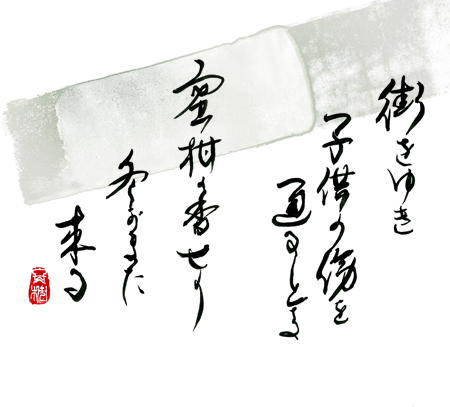 街をゆき
子供の傍を
通るとき
蜜柑の香せり
冬がまた
来る